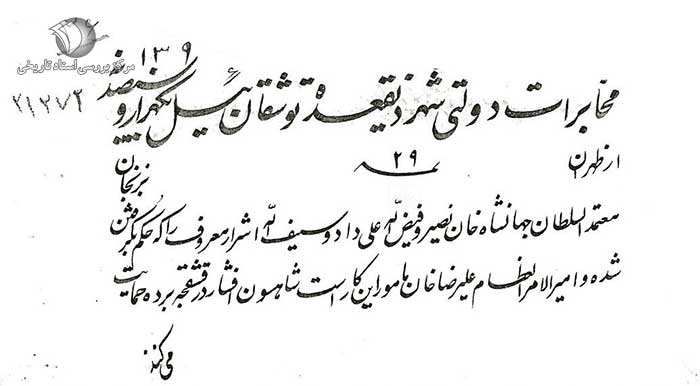 ۱۳۹
مرکز بررسی اسناد تاریخی
۲۱۲۷۲
مخابرات دولتی شهر ذیقعدهٔ توشقان ئیل یکهزار و سیصد
از طهران
۲۹
بزنجان
معتمد السلطان جهانشاه خان نصیر و فیض اله علی داد و سیف اله اشرار معروف را که حکم بگرفتن
شده و امیر الامراء العظام علیرضا خان مامور این کار است شاهسون افشار در قشقچه برده حمایت
می کنند